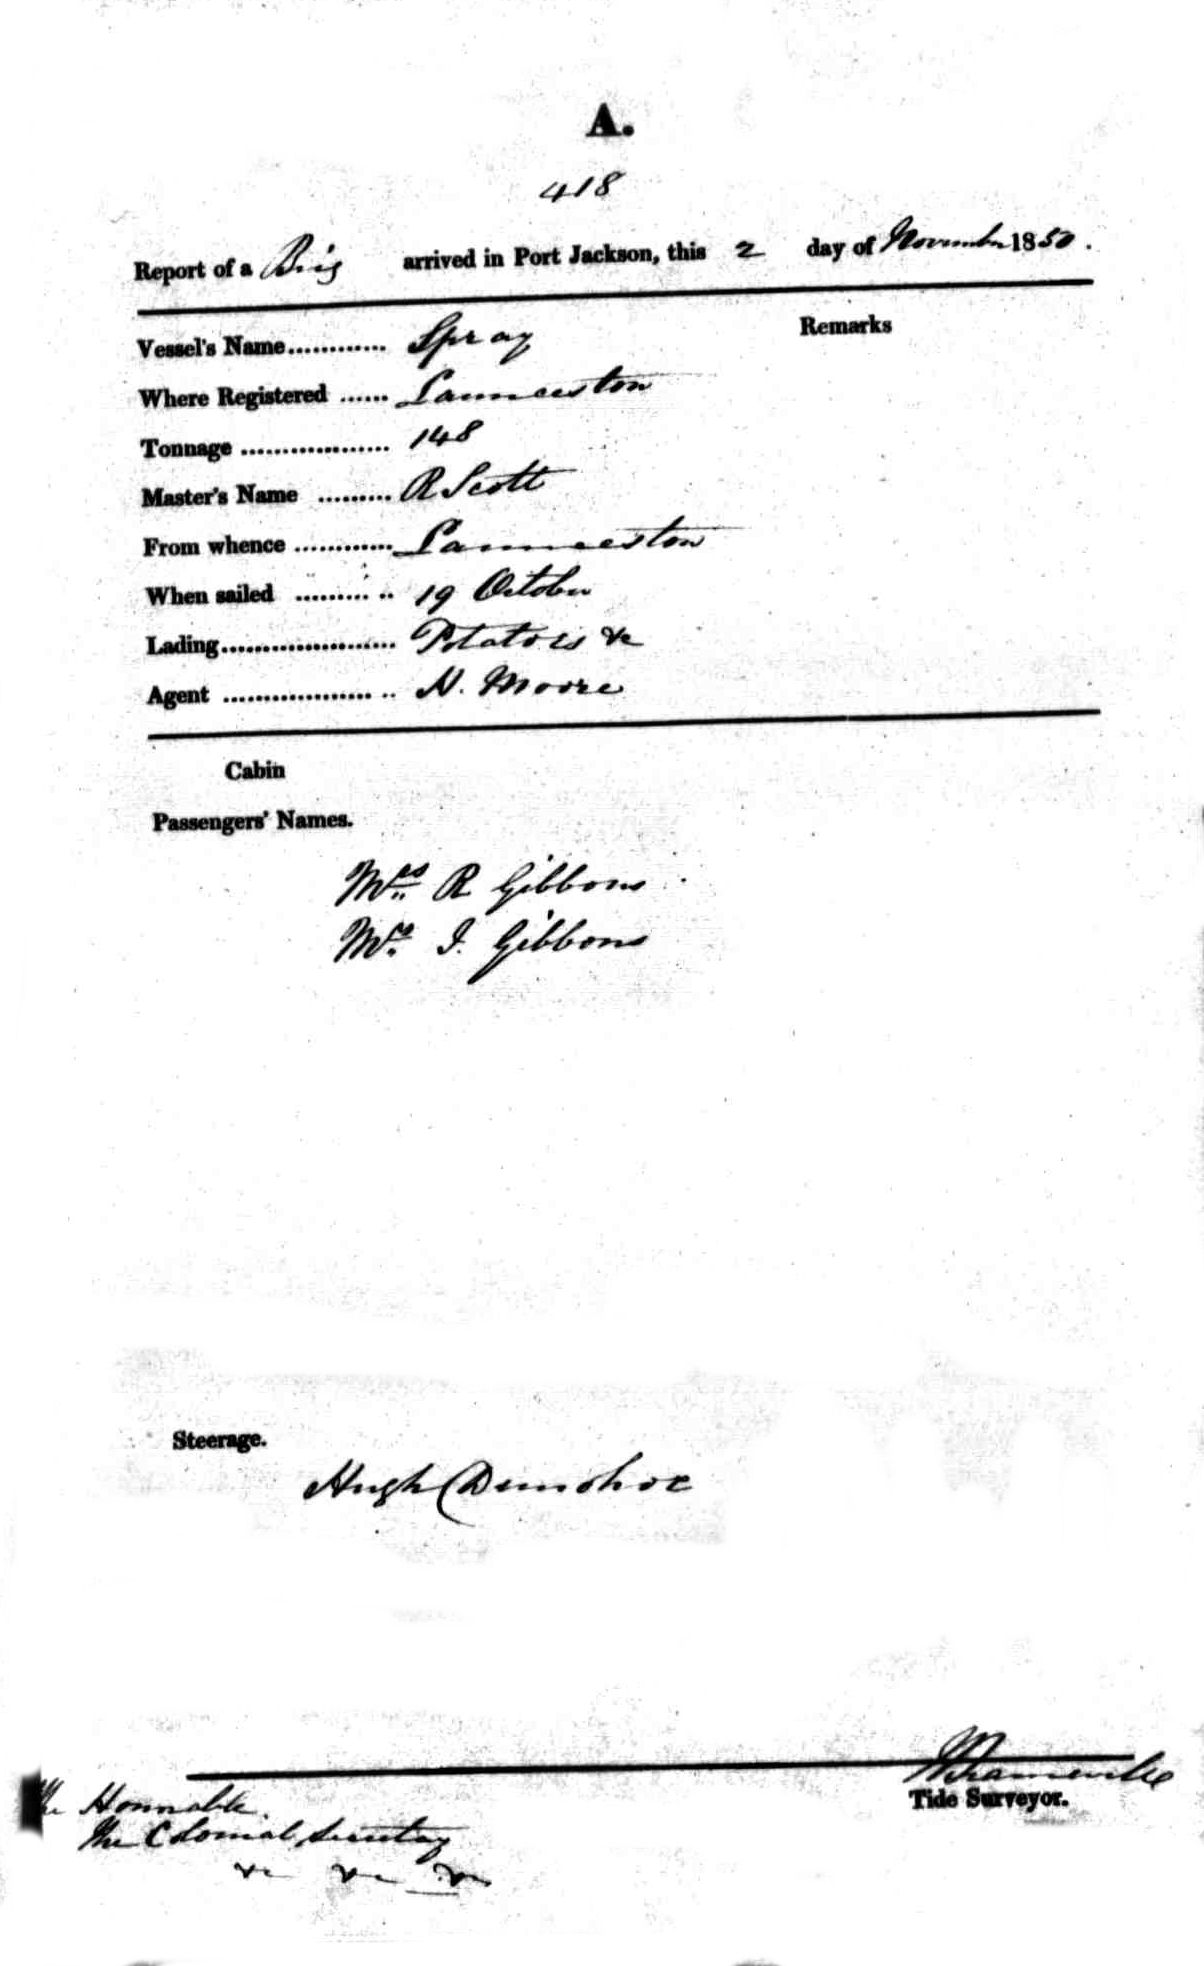 A.
418
Report of a Brig arrived in Port Jackson, this 2 day of November 1850.
Remarks
Vessel's Name............ Spray
Where Registered ...... Launceston
Tonnage .................. 148
Master's Name ......... R Scott
From whence ............ Launceston
When sailed ......... .. 19 October
Lading..................... Potatoes &c
Agent .................. .. N. Moore
Cabin
Passengers' Names.
Mrs R Gibbons
Mrs I. Gibbons
Steerage.
Hugh Dunohoe
Tide Surveyor.
The Honorable
The Colonial Secretary
&c &c &c